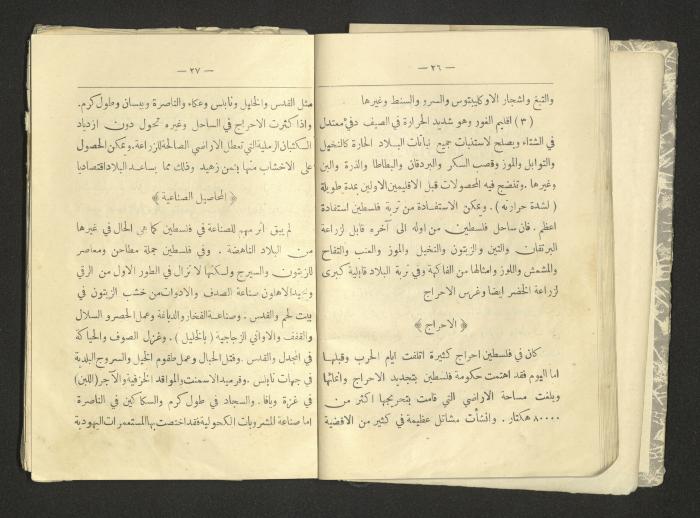 — ٢٦ —
والتبغ واشجار الاوكاليبتوس والسرو والسنط وغيرها
( ٣ ) اقليم الغور وهو شديد الحرارة في الصيف دفيء معتدل
في الشتاء ويصلح لاستنبات جميع نباتات البلاد الحارة كالنخيل
والتوابل والموز وقصب السكر والبردقان والبطاطا والذرة والبن
وغيرها . وتنضج فيه المحصولات قبل الاقليمين الاولين بمدة طويلة
( لشدة حرارته ) . ويمكن الاستفادة من تربة فلسطين استفادة
اعظم . فان ساحل فلسطين من اوله الى آخره قابل لزراعة
البرتقان والتين والزيتون والنخيل والموز والعنب والتفاح
والمشمش واللوز وامثالها من الفاكهة وفي تربة البلاد قابلية كبرى
لزراعة الخضر ايضا وغرس الاحراج
﴿ الاحراج ﴾
كان في فلسطين احراج كثيرة اتلفت ايام الحرب وقبلها
اما اليوم فقد اهتمت حكومة فلسطين بتجديد الاحراج وانمائها
وبلغت مساحة الاراضي التي قامت بتحريجها اكثر من
٨٠٠٠٠ هكتار . وانشأت مشاتل عظيمة في كثير من الاقضية
— ٢٧ —
مثل القدس والخليل ونابلس وعكاء والناصرة وبيسان وطول كرم.
واذا كثرت الاحراج في الساحل وغيره تحول دون ازدياد
الكثبان الرملية التي تعطل الاراضي الصالحة للزراعة. ويمكن الحصول
على الاخشاب منها بثمن زهيد وذلك مما يساعد البلاد اقتصاديا
﴿ المحاصيل الصناعية ﴾
لم يبق اثر مهم للصناعة في فلسطين كما هي الحال في غيرها
من البلاد الناهضة . وفي فلسطين جملة مطاحن ومعاصر
للزيتون والسيرج ولكنها لا تزال في الطور الاول من الرقي
ويجيد الاهلون صناعة الصدف والادوات من خشب الزيتون في
بيت لحم والقدس . وصناعة الفخار والدباغة وعمل الحصر والسلال
والقفف والاواني الزجاجية ( بالخليل ) . وغزل الصوف والحياكة
في المجدل والقدس . وفتل الحبال وعمل طقوم الخيل والسروج البلدية
في جهات نابلس . وقرميد الاسمنت والمواقد الخزفية والآجر (اللبن)
في غزة ويافا . والسجاد في طول كرم والسكاكين في الناصرة
اما صناعة المشروبات الكحولية فقد اختصت بها المستعمرات اليهودية